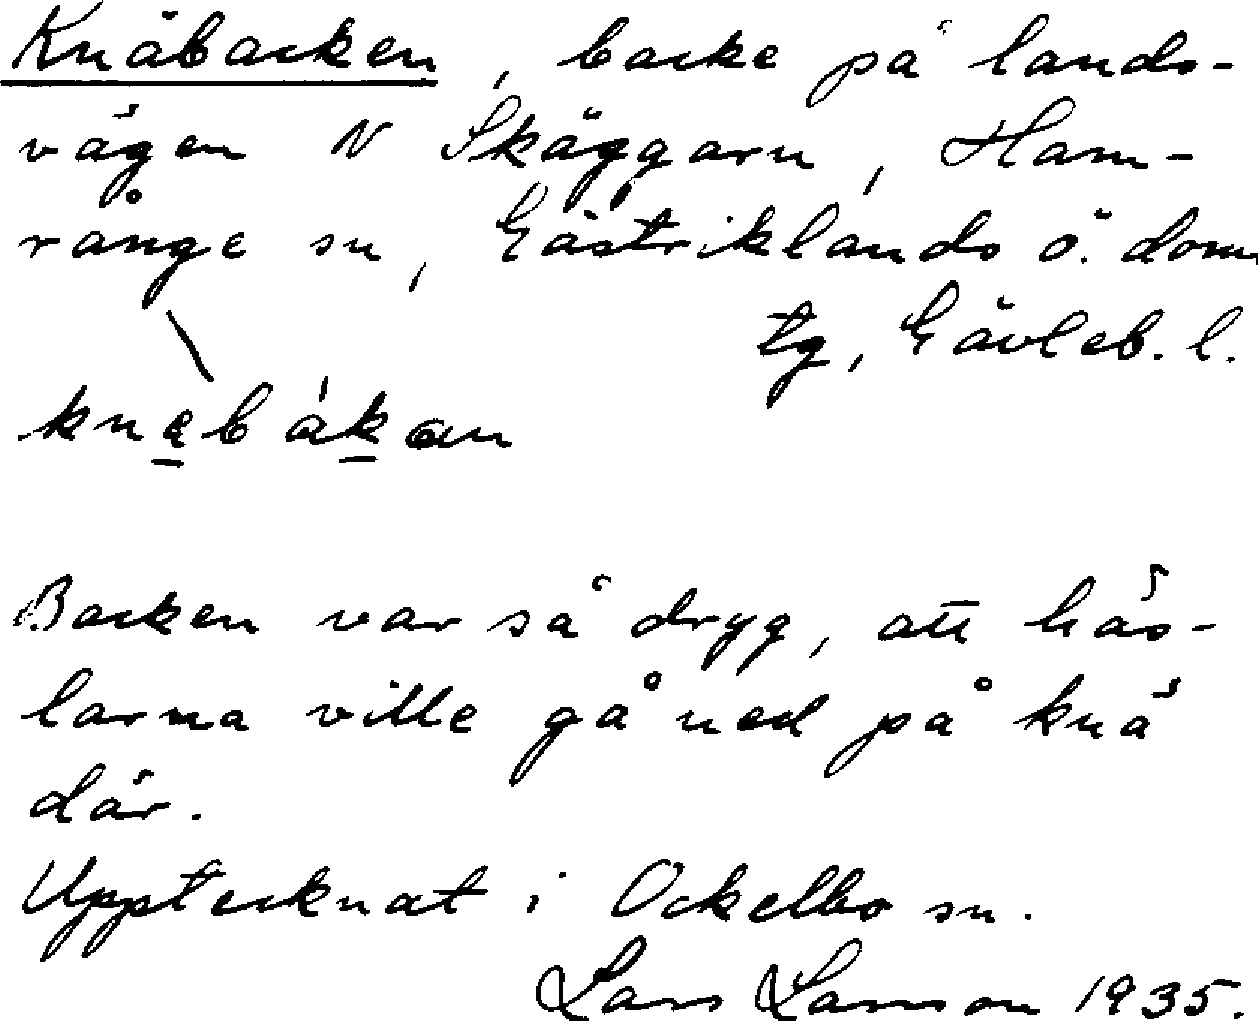 Knäbacken, backe på lands-
vägen N Skäggarn, Ham-
rånge sn, Gästriklands ö. dom
tg, Gävleb. l.
Backen var så dryg, att häs-
tarna ville gå ned på knä
där.
Upptecknat i Ockelbo sn.
Lars Larsson 1935.